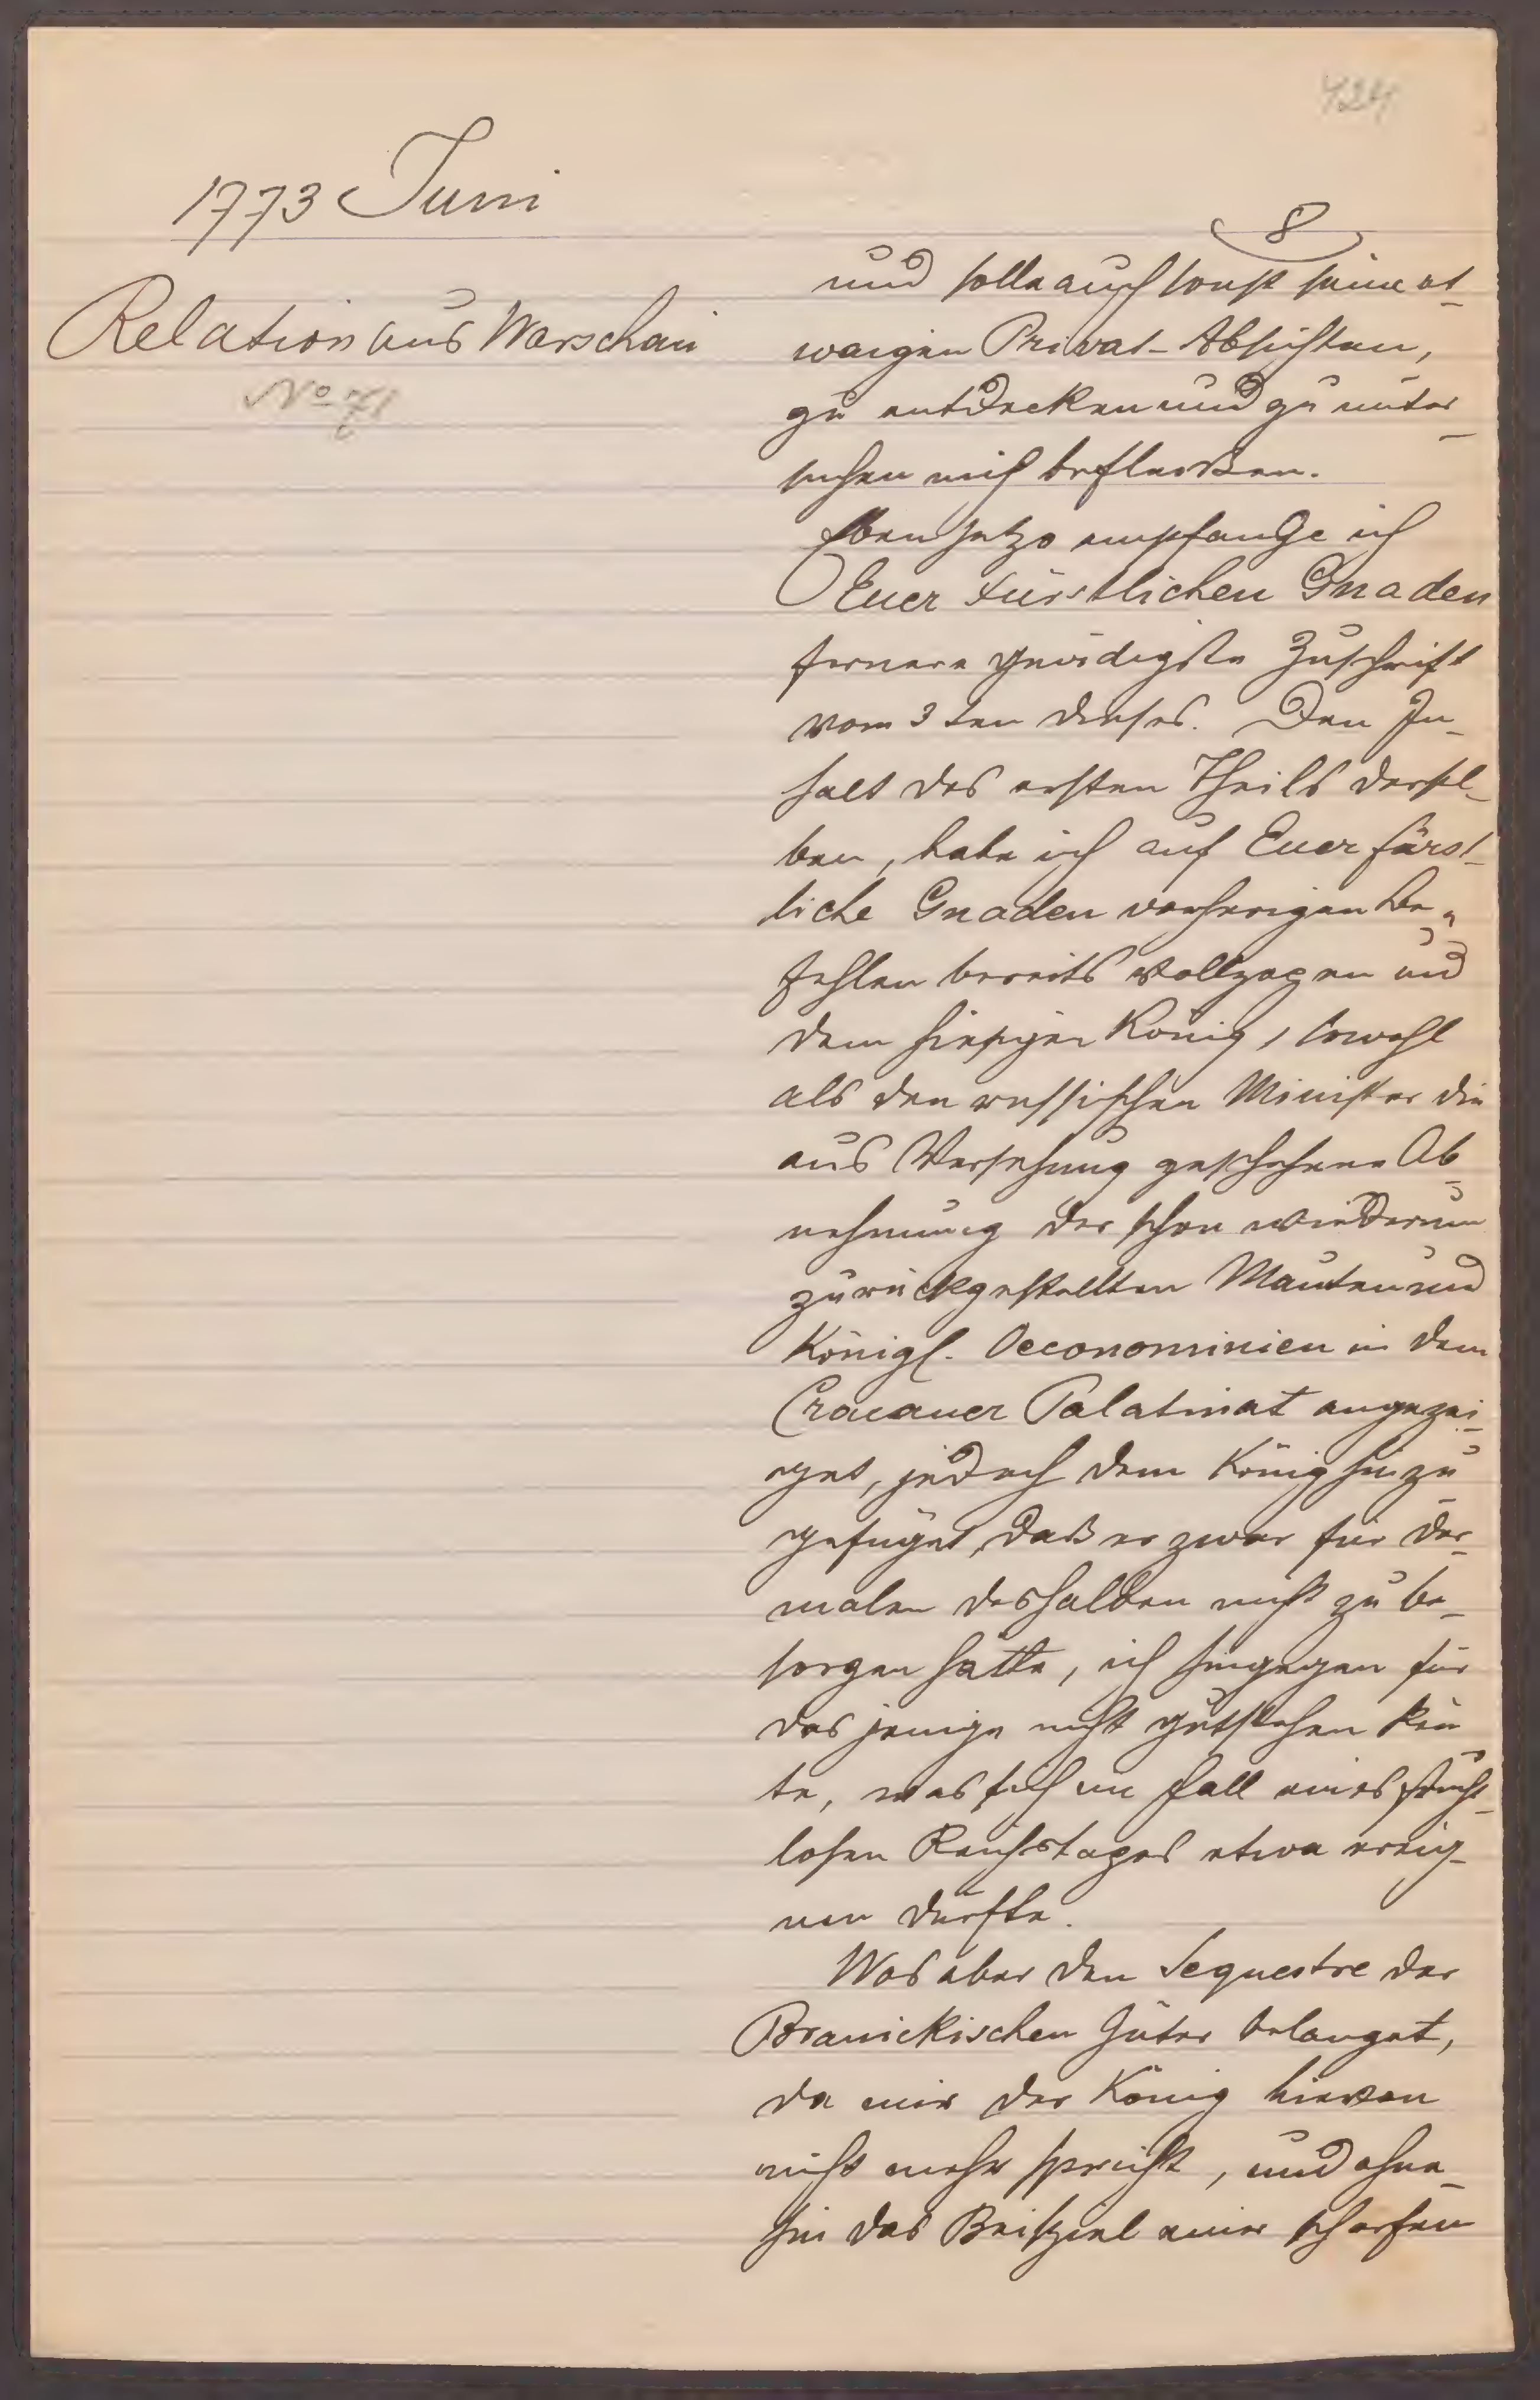 424
1773 Juni
8
Relation aus Warschau
No 71
und solle auch sonst seine et-
waigen Privat-Absichten,
zu entdecken und zu unter-
suchen mich befleißen.
Eben jetzo empfange ich
Euer Fürstlichen Gnaden
fernere gnädigste Zuschrift
vom 3ten dieses. Den In-
halt des ersten Theils dersel-
ben, habe ich auf Euer fürst-
liche Gnaden vorherigen Be-
fehlen bereits vollzogen und
dem hiesigen König, sowohl
als den russischen Minister die
aus Versehung geschehene Ab-
nehmung der schon wiederum
zurückgestellten Mauten und
Königl. Oeconominien in dem
Cracauer Palatinat angezei-
get, jedoch dem König hinzu
gefüget, daß er zwar für der-
malen deshalben nicht zu be-
sorgen hätte, ich hingegen für
das jenige nicht gutstehen kön
te, was sich im Fall eines frucht-
losen Reichstages etwa ereig-
nen dürfte.
Was aber den Sequestre der
Branickischen Güter belanget,
da mir der König hievon
nicht mehr spricht, und ohne-
hin das Beispiel einer scharfen